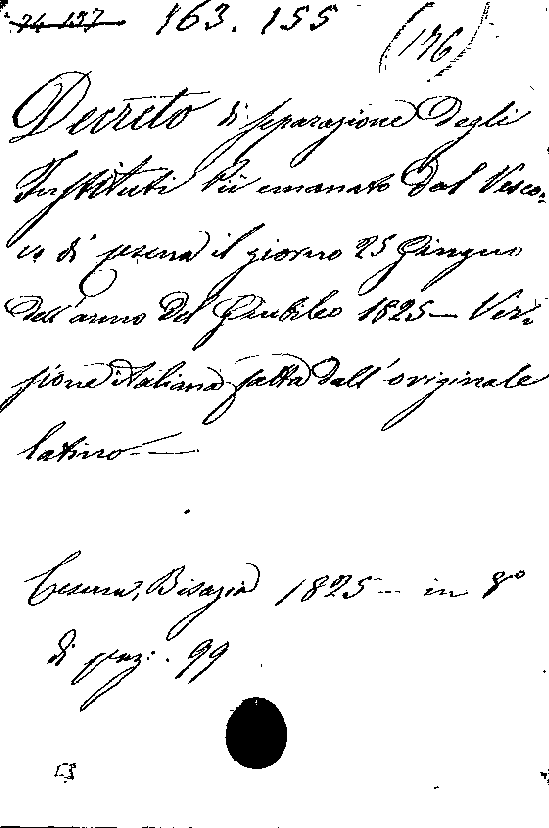 74-157 163. 155
(176)
Decreto di separazione degli
Instituti Pii emanato dal Vesco-
vo di Cesena il giorno 25 Giugno
dell'anno del Giubileo 1825 — Ver-
sione italiana fatta dall'originale
latino —
Cesena, Biasini 1825 — in 8°
di pag: . 99